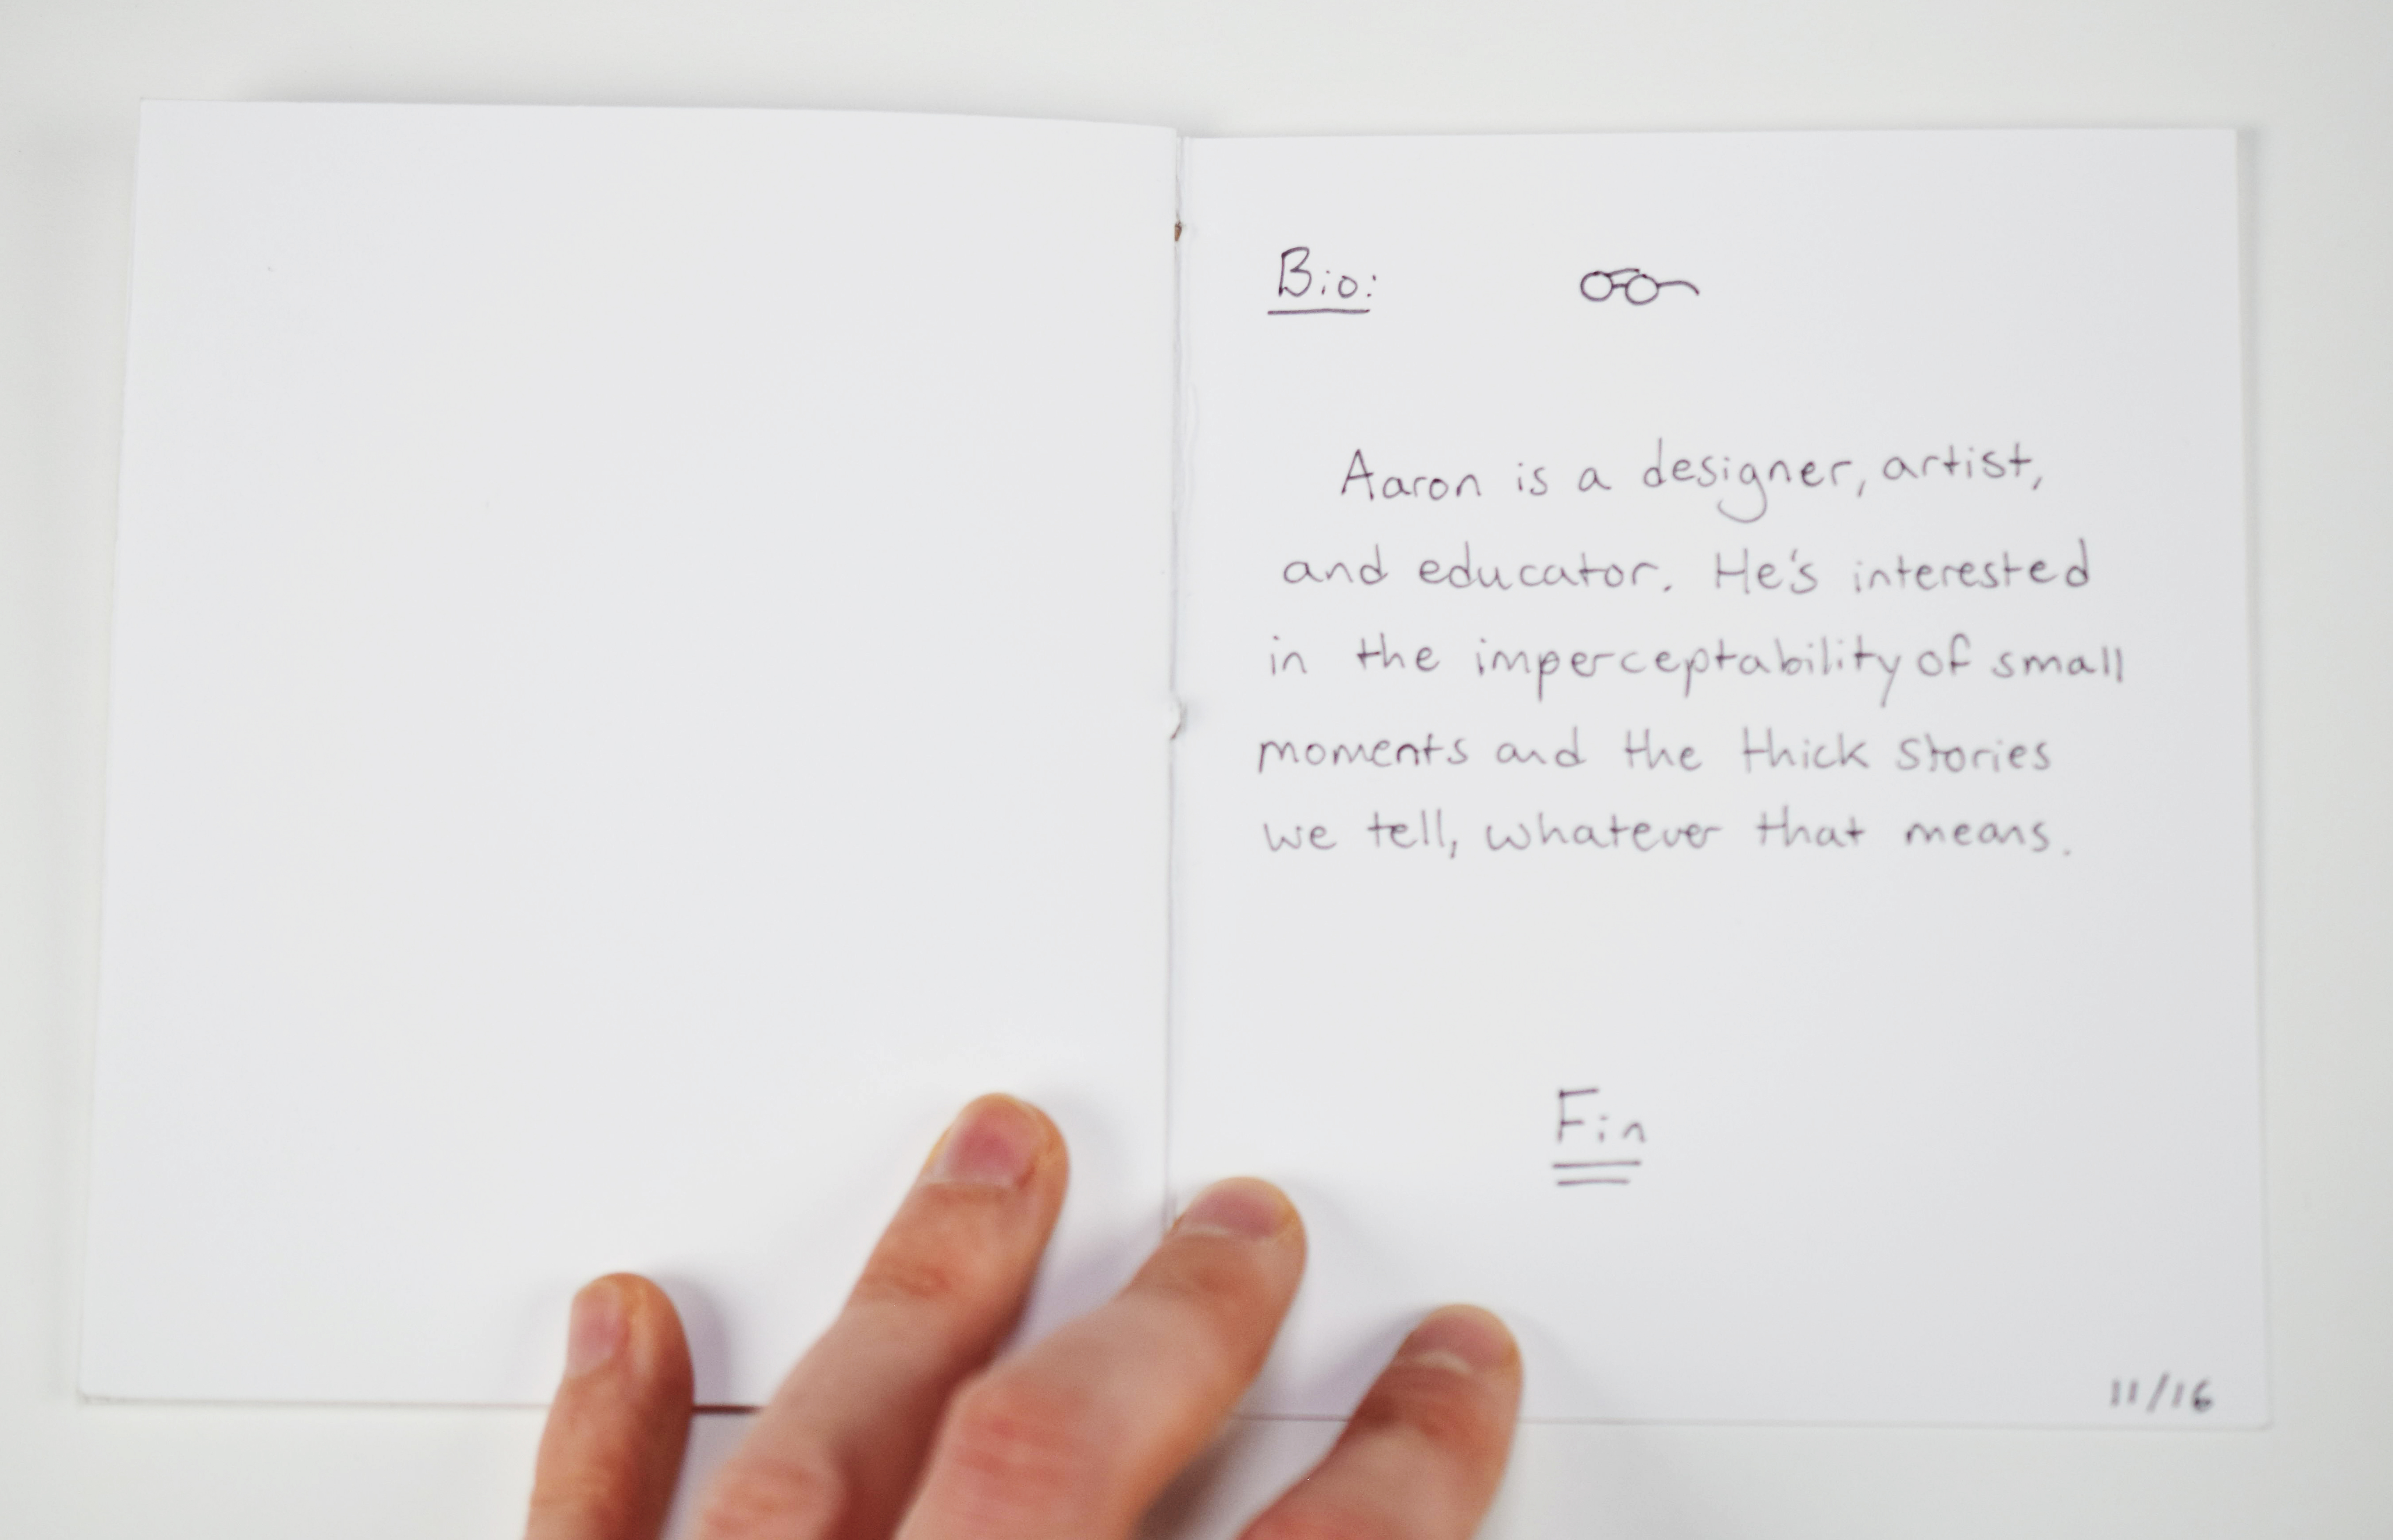 Bio:
Aaron is a designer, artist,
and educator. He's interested
in the imperceptability of small
moments and the thick stories
we tell, whatever that means.
Fin
11/16